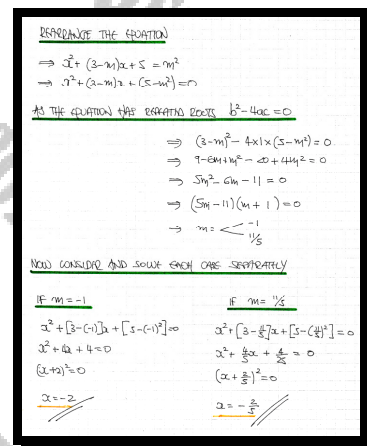 REARRANGE THE EQUATION
⇒ x² + (3-m)x + 5 = m²
⇒ x² + (3-m)x + (5-m²) = 0
AS THE EQUATION HAS REPEATED ROOTS b²-4ac = 0
⇒ (3-m)² - 4×1×(5-m²) = 0
⇒ 9-6m+m² - 20 + 4m² = 0
⇒ 5m² - 6m - 11 = 0
⇒ (5m-11)(m+1) = 0
⇒ m = < -1
11/5
NOW CONSIDER AND SOLVE EACH CASE SEPARATELY
IF m = -1
x² + [3-(-1)]x + [5-(-1)²] = 0
x² + 4x + 4 = 0
(x+2)² = 0
x = -2
IF m = 11/5
x² + [3-11/5]x + [5-(11/5)²] = 0
x² + 4/5x + 4/25 = 0
(x + 2/5)² = 0
x = -2/5